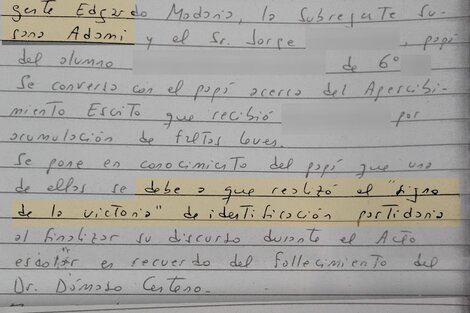 gente Edgardo Madana, la Subregente Su-
sana Adami y el Sr. Jorge , papá
del alumno de 6º
Se conversa con el papá acerca del Apercibi-
miento Escrito que recibió por
acumulación de faltas leves.
Se pone en conocimiento del papá que una
de ellas se debe a que realizó el "signo
de la victoria" de identificación partidaria
al finalizar su discurso durante el Acto
escolar en recuerdo del fallecimiento del
Dr. Dámaso Centeno.